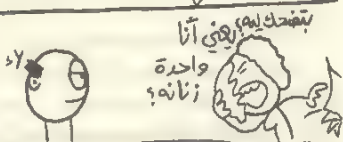 بتضحك ليه؟ يعني أنا
واحدة
زنانه؟
لاء